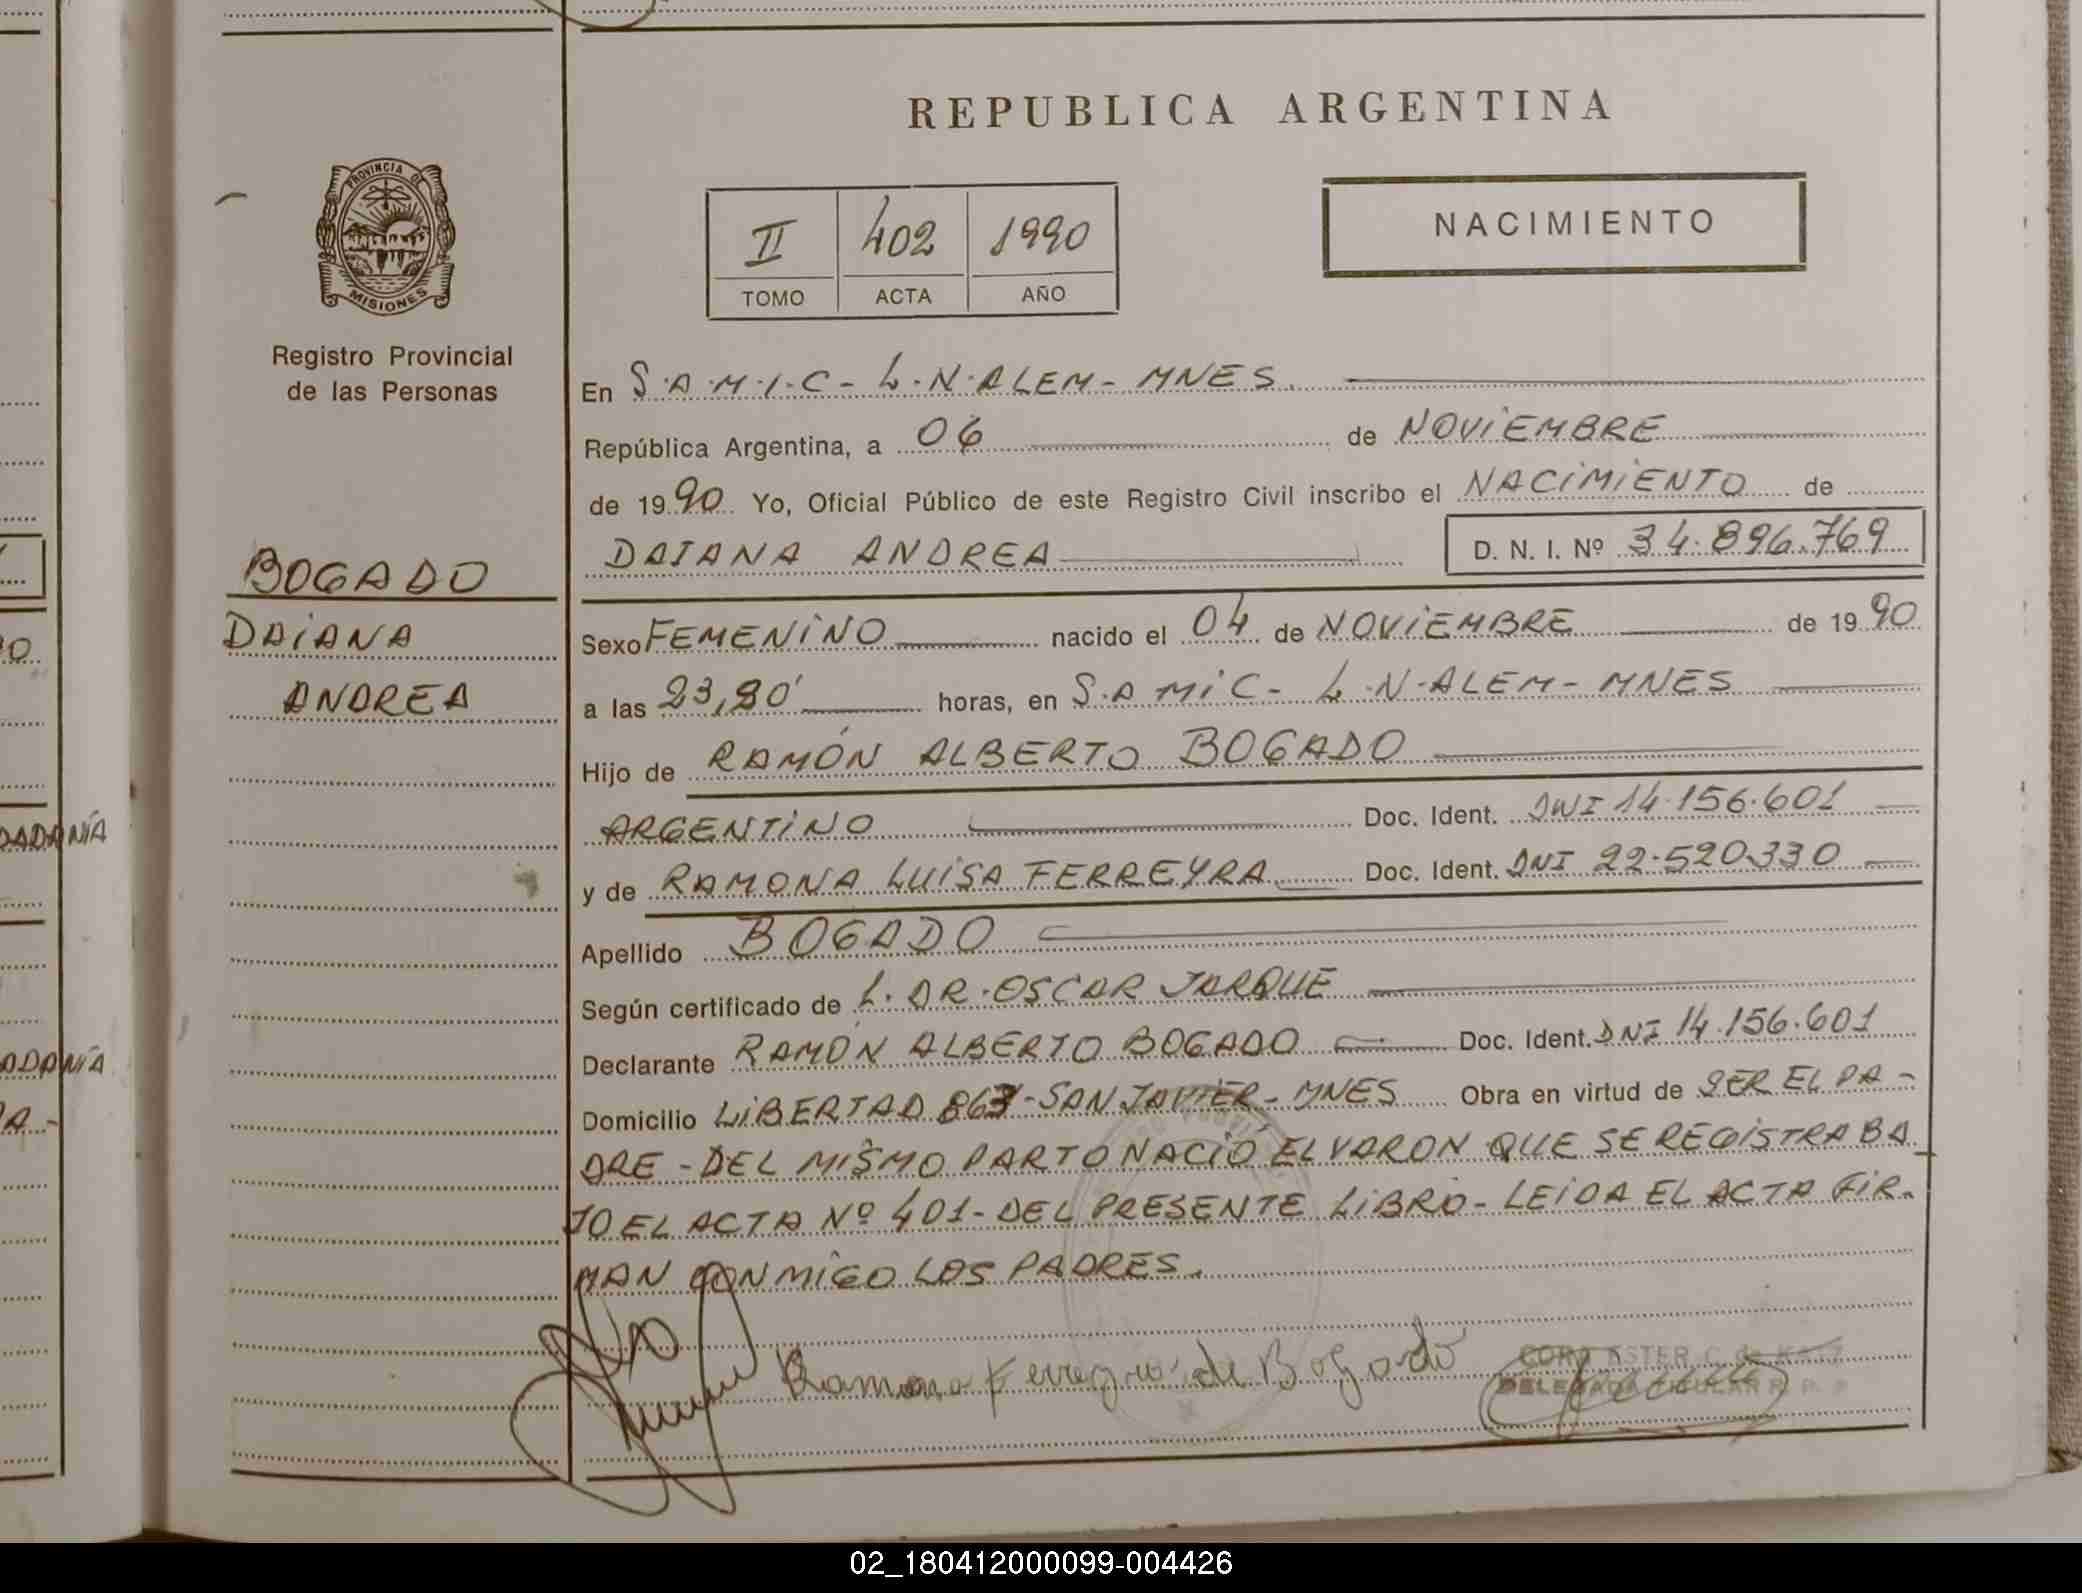 REPUBLICA ARGENTINA
PROVINCIA DE
MISIONES
Registro Provincial
de las Personas
II 402 1990
TOMO ACTA AÑO
NACIMIENTO
En S.A.M.I.C - L.N.ALEM - MNES.
República Argentina, a 06 de NOVIEMBRE
de 1990 Yo, Oficial Público de este Registro Civil inscribo el NACIMIENTO de
DAIANA ANDREA D. N. I. Nº 34.896.769
BOGADO
DAIANA
ANDREA
Sexo FEMENINO nacido el 04 de NOVIEMBRE de 1990
a las horas, en S.A MIC - L.N.ALEM - MNES
Hijo de RAMÓN ALBERTO BOGADO
ARGENTINO Doc. Ident. DNI 14.156.601
y de RAMONA LUISA FERREYRA Doc. Ident. DNI 22.520.330
Apellido BOGADO
Según certificado de L. DR. OSCAR JARQUE
Declarante RAMÓN ALBERTO BOGADO Doc. Ident. DNI 14.156.601
Domicilio LIBERTAD - SAN JAVIER - MNES Obra en virtud de SER EL PA-
DRE - DEL MISMO PARTO NACIÓ EL VARON QUE SE REGISTRA BA
JO EL ACTA Nº 401 - DEL PRESENTE LIBRO - LEIDA EL ACTA FIR-
MAN CONMIGO LOS PADRES.
Ramona Ferreyra de Bogado
02_180412000099-004426